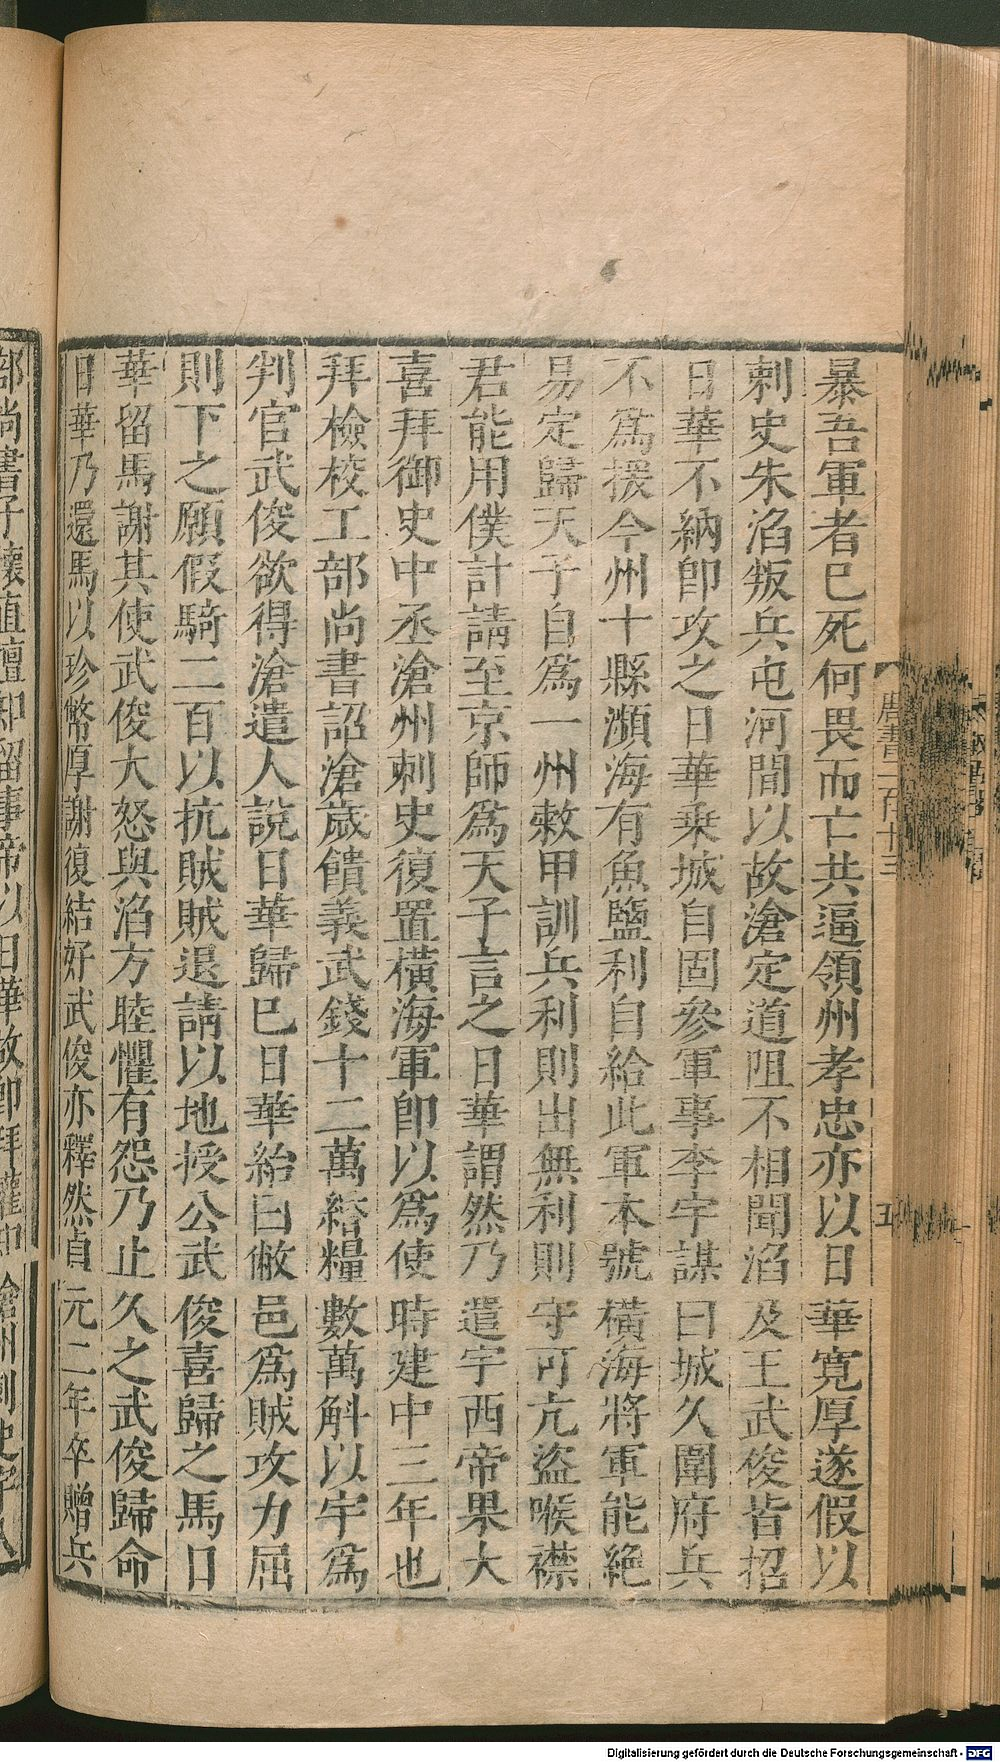 暴吾軍者巳死何畏而亡共逼領州孝忠亦以日華寬厚遂假以
刺史朱滔叛兵屯河間以故滄定道阻不相聞滔及王武俊皆招
日華不納卽攻之日華乘城自固參軍事李宇謀曰城久圍府兵
不爲援今州十縣瀕海有魚鹽利自給此軍本號橫海將軍能絶
易定歸天子自爲一州敕甲訓兵利則出無利則守可亢盜喉襟
君能用僕計請至京師爲天子言之日華謂然乃遣宇西帝果大
喜拜御史中丞滄州刺史復置橫海軍卽以爲使時建中三年也
拜檢校工部尚書詔滄歲饋義武錢十二萬緡糧數萬斛以宇爲
判官武俊欲得滄遣人說日華歸巳日華紿曰敝邑爲賊攻力屈
則下之願假騎二百以抗賊賊退請以地授公武俊喜歸之馬日
華留馬謝其使武俊大怒與滔方睦懼有怨乃止久之武俊歸命
日華乃還馬以珍幣厚謝復結好武俊亦釋然貞元二年卒贈兵
部尚書子懷直擅知留事帝以日華故卽拜權知滄州刺史
唐書二百十三
五
Digitalisierung gefördert durch die Deutsche Forschungsgemeinschaft - DFG